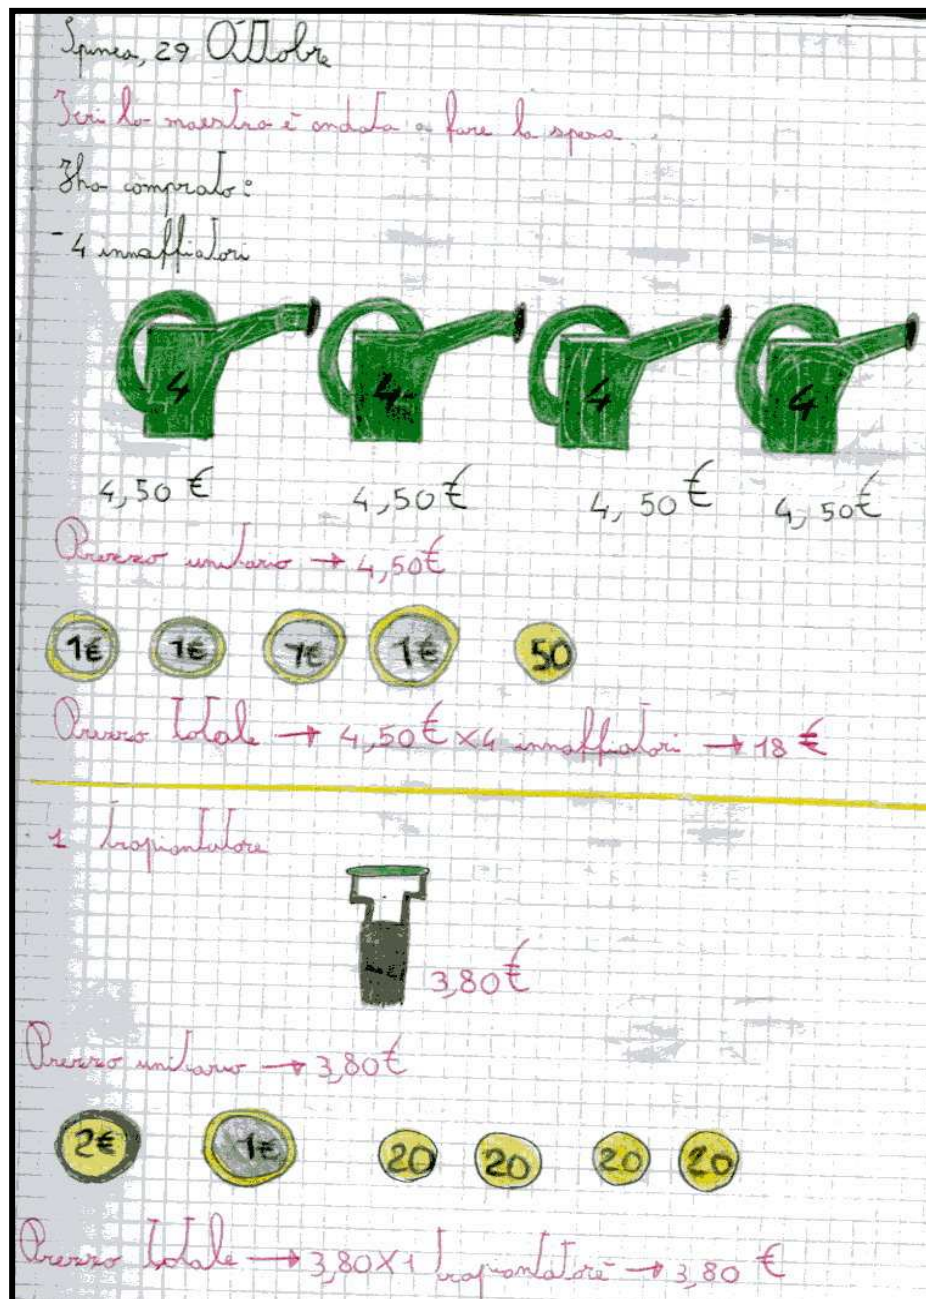 Spinea, 29 Ottobre
Ieri la maestra è andata a fare la spesa.
Ha comprato:
- 4 innaffiatori
4 4 4 4
4,50 € 4,50 € 4,50 € 4,50 €
Prezzo unitario → 4,50 €
1€ 1€ 1€ 1€ 50
Prezzo totale → 4,50 € x 4 innaffiatori → 18 €
- 1 trapiantatore
3,80 €
Prezzo unitario → 3,80 €
2€ 1€ 20 20 20 20
Prezzo totale → 3,80 X 1 trapiantatore → 3,80 €